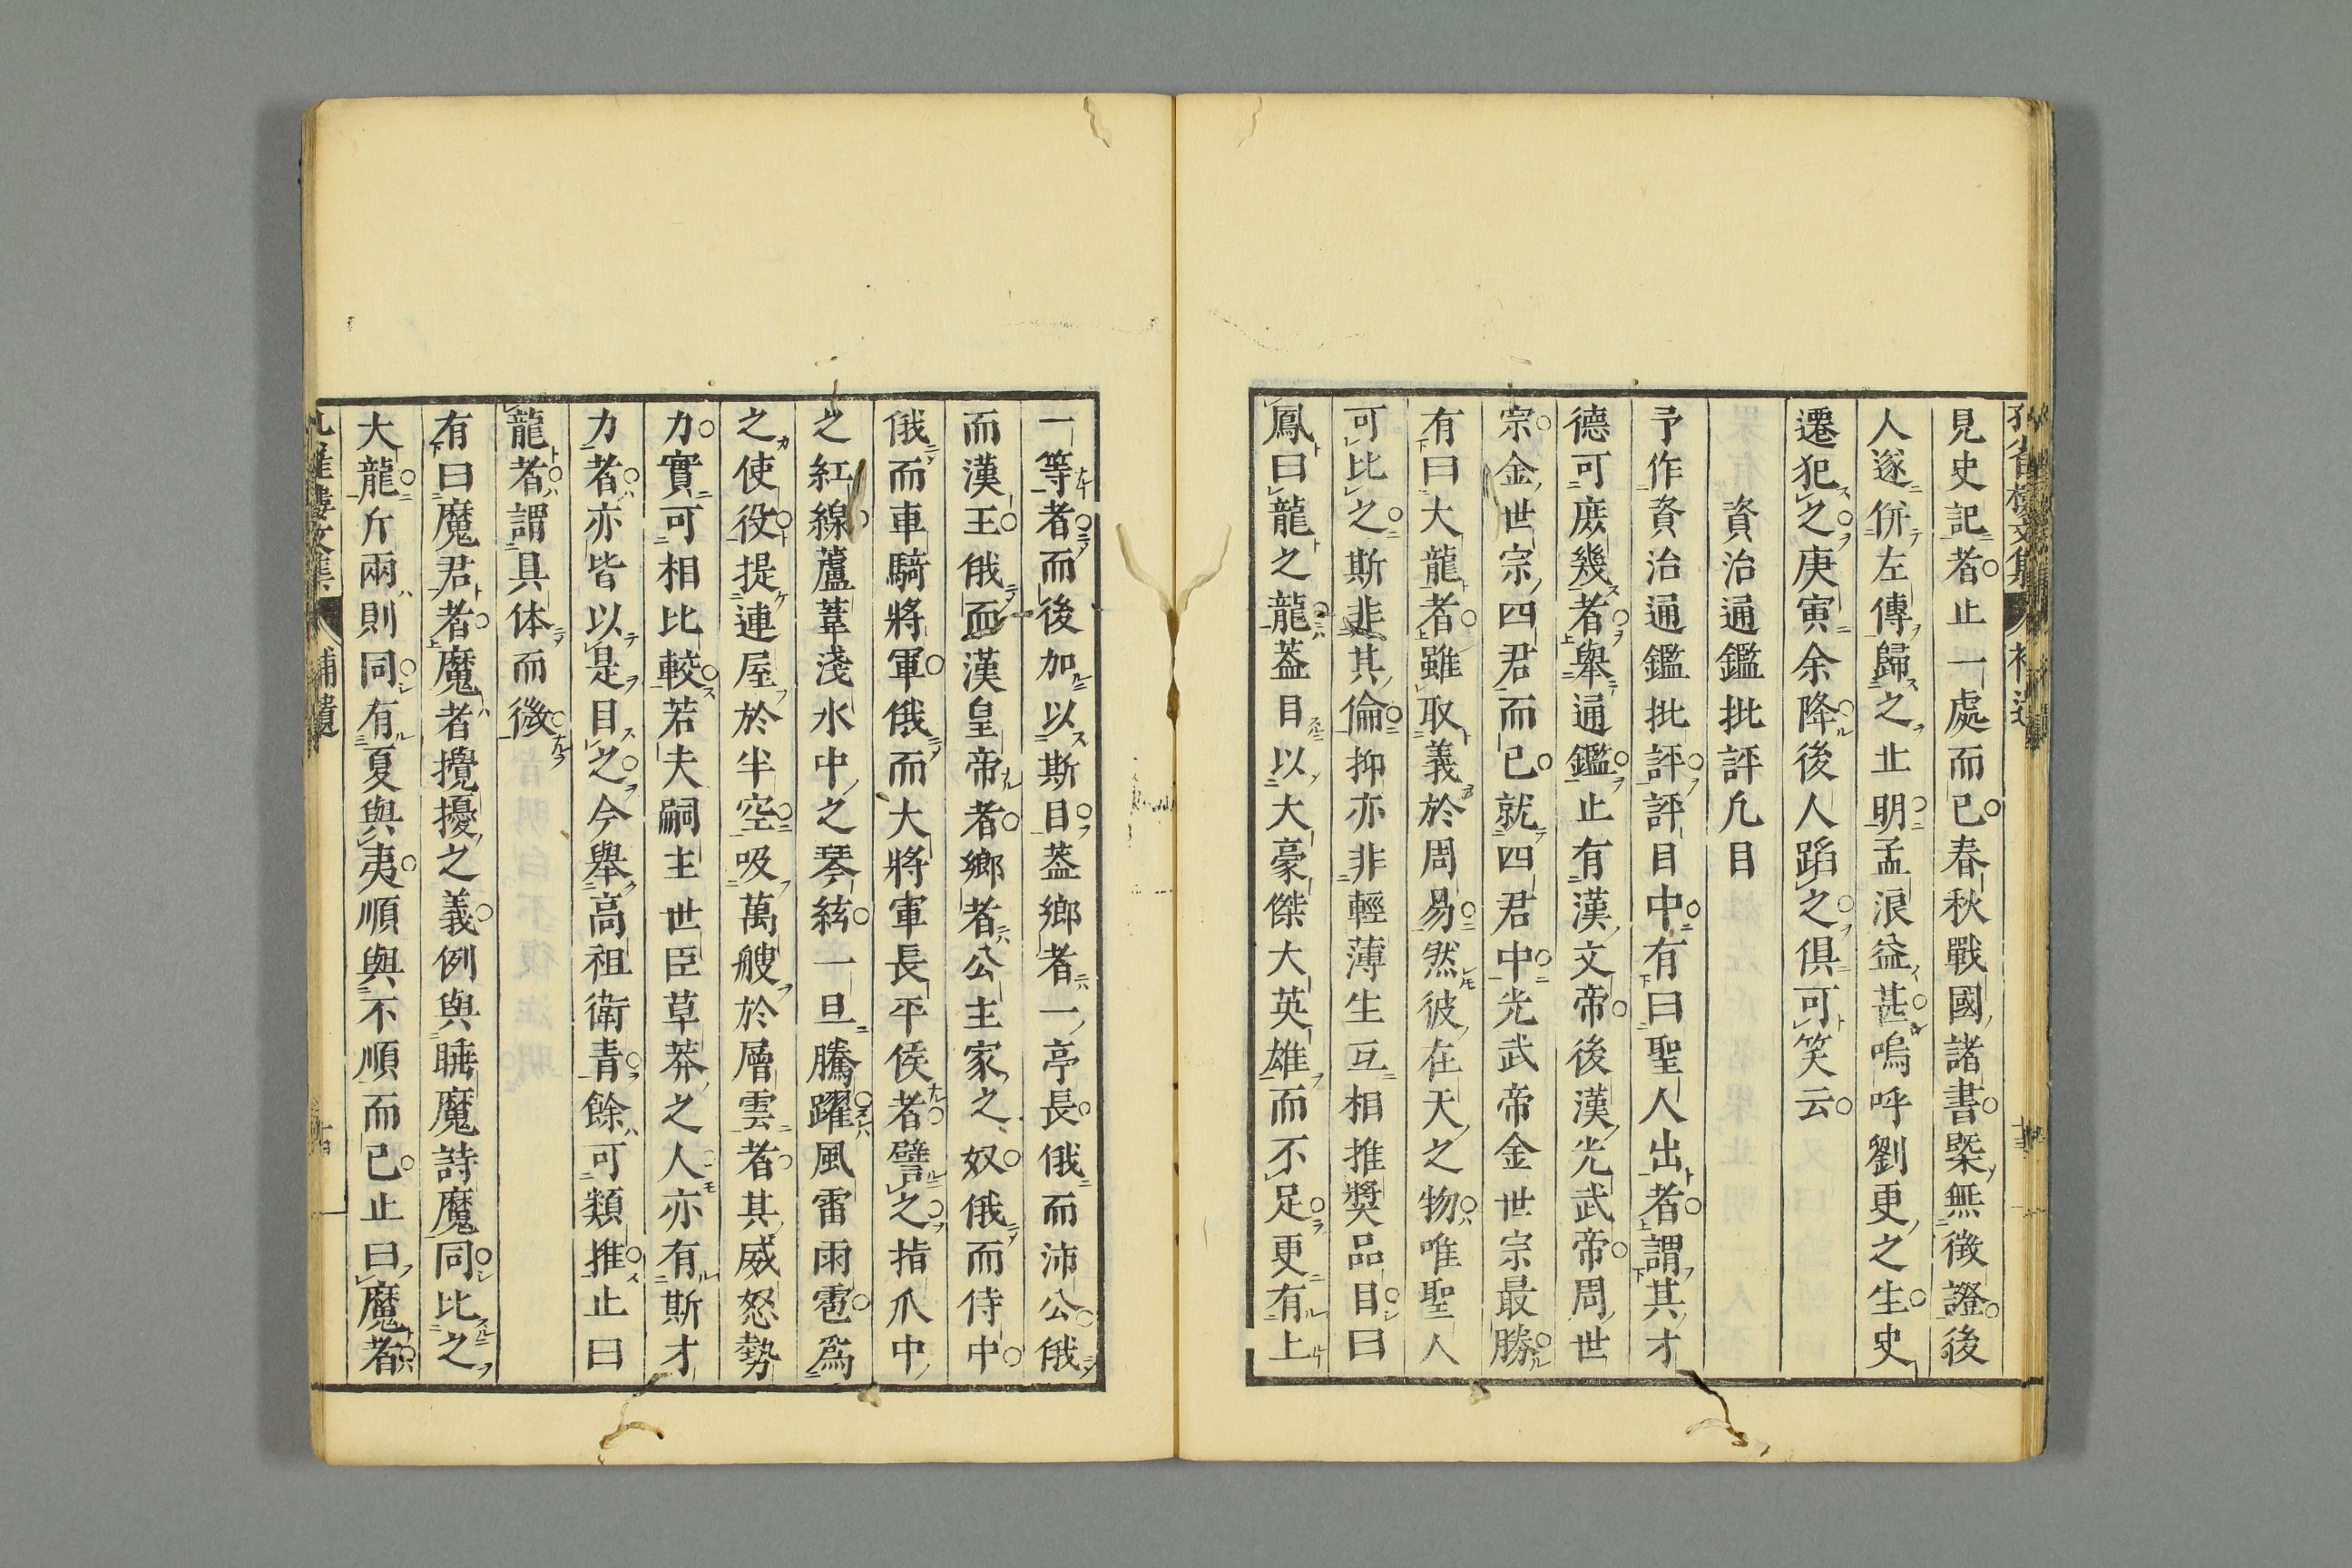 見史記者止一處而已春秋戰國諸書槩無徴證後
人遂併左傳歸之丘明孟浪益甚嗚呼劉更之生史
遷犯之庚寅余降後人蹈之俱可笑云
資治通鑑批評凡目
予作資治通鑑批評評目中有曰聖人出者謂其才
德可庶幾者舉通鑑止有漢文帝後漢光武帝周世
宗金世宗四君而已就四君中光武帝金世宗最勝
有曰大龍者雖取義於周易然彼在天之物唯聖人
可比之斯非其倫抑亦非輕薄生互相推奬品目曰
鳳曰龍之龍葢目以大豪傑大英雄而不足更有上
一等者而後加以斯目葢鄉者一亭長俄而沛公俄
而漢王俄而漢皇帝者鄉者公主家之奴俄而侍中
俄而車騎將軍俄而大將軍長平侯者譬之指爪中
之紅線蘆葦淺水中之琴絃一旦騰躍風雷雨雹爲
之使役提連屋於半空吸萬艘於層雲者其威怒勢
力實可相比較若夫嗣主世臣草莽之人亦有斯才
力者亦皆以是目之今舉高祖衛青餘可類推止曰
龍者謂具体而微
有曰魔君者魔者攪擾之義例與睡魔詩魔同比之
大龍斤兩則同有夏與夷順與不順而已止曰魔者
補遺